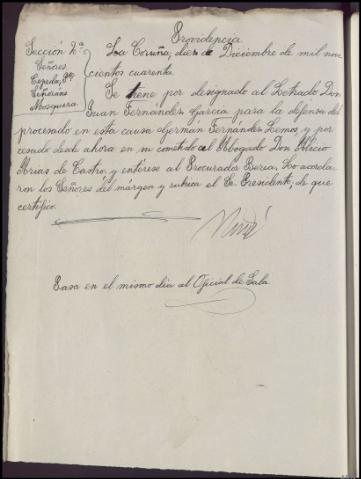 Providencia
Sección 2ª
Señores
Cepeda, Pte
Señoráns
Mosquera
La Coruña, diez de Diciembre de mil nove
cientos cuarenta.
Se tiene por designado al Letrado Don
Juan Fernández García para la defensa del
procesado en esta causa Germán Fernández Lemos y por
cesado desde ahora en su cometido al Abogado Don Alicio
Arias de Castro, y entérese al Procurador Berea. Lo acorda-
ron los Señores del márgen y rubrica el Sr. Presidente, de que
certifico.
Pasa en el mismo dia al Oficial de Sala